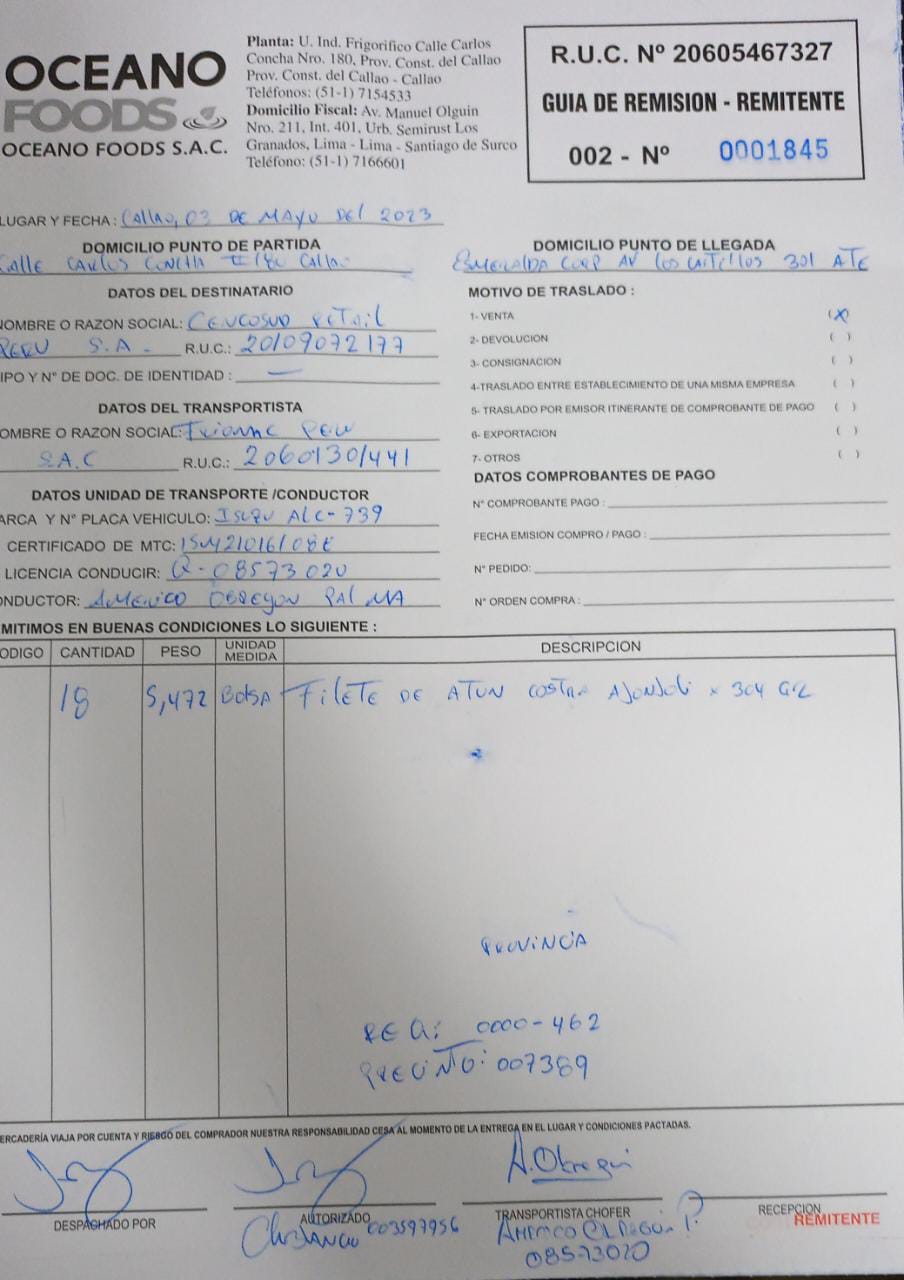 OCEANO
FOODS
OCEANO FOODS S.A.C.
Planta: U. Ind. Frigorifico Calle Carlos
Concha Nro. 180, Prov. Const. del Callao
Prov. Const. del Callao - Callao
Teléfonos: (51-1) 7154533
Domicilio Fiscal: Av. Manuel Olguin
Nro. 211, Int. 401, Urb. Semirust Los
Granados, Lima - Lima - Santiago de Surco
Teléfono: (51-1) 7166601
R.U.C. Nº 20605467327
GUIA DE REMISION - REMITENTE
002 - Nº 0001845
LUGAR Y FECHA: Callao, 03 DE MAYO DEl 2023
DOMICILIO PUNTO DE PARTIDA
Calle CARLOS CONCHA #180 Callao
DATOS DEL DESTINATARIO
NOMBRE O RAZON SOCIAL: CENCOSUD RETAIL
PERU S.A. R.U.C.: 20109072177
IPO Y N° DE DOC. DE IDENTIDAD : —
DATOS DEL TRANSPORTISTA
OMBRE O RAZON SOCIAL: PERU
S.A.C R.U.C.: 20601301441
DATOS UNIDAD DE TRANSPORTE /CONDUCTOR
ARCA Y N° PLACA VEHICULO: ISUZU ALC-739
CERTIFICADO DE MTC: 15M21016108E
LICENCIA CONDUCIR: Q-08573020
ONDUCTOR: AMERICO OBREGON PALMA
DOMICILIO PUNTO DE LLEGADA
ESMERALDA CORP AV los 301 ATE
MOTIVO DE TRASLADO :
1- VENTA (X)
2- DEVOLUCION ( )
3- CONSIGNACION ( )
4-TRASLADO ENTRE ESTABLECIMIENTO DE UNA MISMA EMPRESA ( )
5- TRASLADO POR EMISOR ITINERANTE DE COMPROBANTE DE PAGO ( )
6- EXPORTACION ( )
7- OTROS ( )
DATOS COMPROBANTES DE PAGO
N° COMPROBANTE PAGO :
FECHA EMISION COMPRO / PAGO :
N° PEDIDO:
N° ORDEN COMPRA :
MITIMOS EN BUENAS CONDICIONES LO SIGUIENTE :
ODIGO CANTIDAD PESO UNIDAD MEDIDA DESCRIPCION
18 5,472 BOlSA FilETE DE ATUN COSTRA AJONJOLI x 304 GR
PROVINCIA
REQ: 0000-462
PRECINTO: 007389
ERCADERÍA VIAJA POR CUENTA Y RIESGO DEL COMPRADOR NUESTRA RESPONSABILIDAD CESA AL MOMENTO DE LA ENTREGA EN EL LUGAR Y CONDICIONES PACTADAS.
A.Obregon
DESPACHADO POR
AUTORIZADO
003597956
TRANSPORTISTA CHOFER
AMERICO OBREGON P.
08573020
RECEPCION
REMITENTE